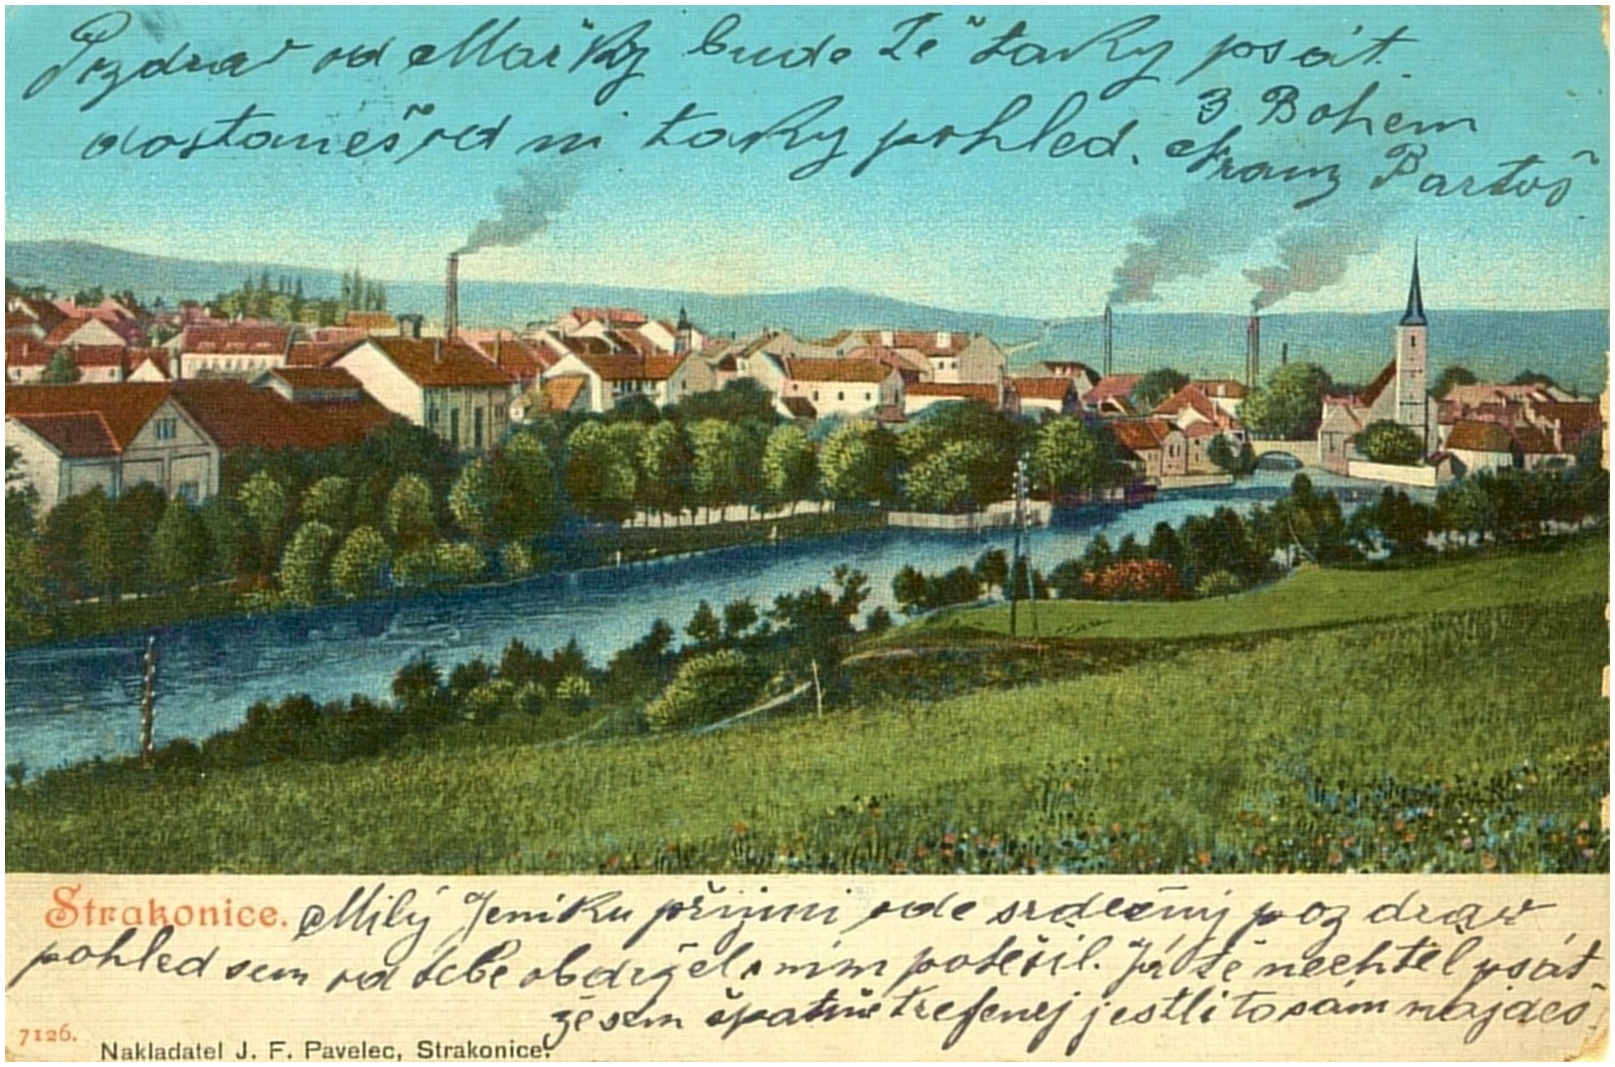 Pozdrav od Mařky bude Tě taky psát.
dostaneš od ni taky pohled. Z Bohem
Franz Bartoš
Strakonice. Milý Jeníku přijmi ode srdečný pozdraw
pohled sem od tebe obdržel s ním potěšil. Já tě nechtěl psát
že sem špatně trefenej jestli to sám najdeš
7126.
Nakladatel J. F. Pavelec, Strakonice.